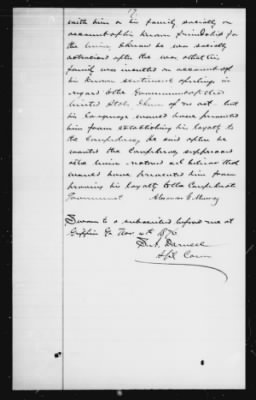 17
with him or his family socially on
account of his known friendship for
the Union, I know he was socially
ostracised after the war, & that his
family was insulted on account of
his known sentiments & feelings in
regard to the Government of the
United States. I know of no act but
his language would have prevented
him from establishing his loyalty to
the Confederacy, he said often he
wanted the Confederacy suppressed
& the Union restored & I believe that
would have prevented him from
proving his loyalty to the Confederate
Government
Sworn to & subscribed before me at
Griffin Ga Nov 1876
D. A. Darnell
Spl Com